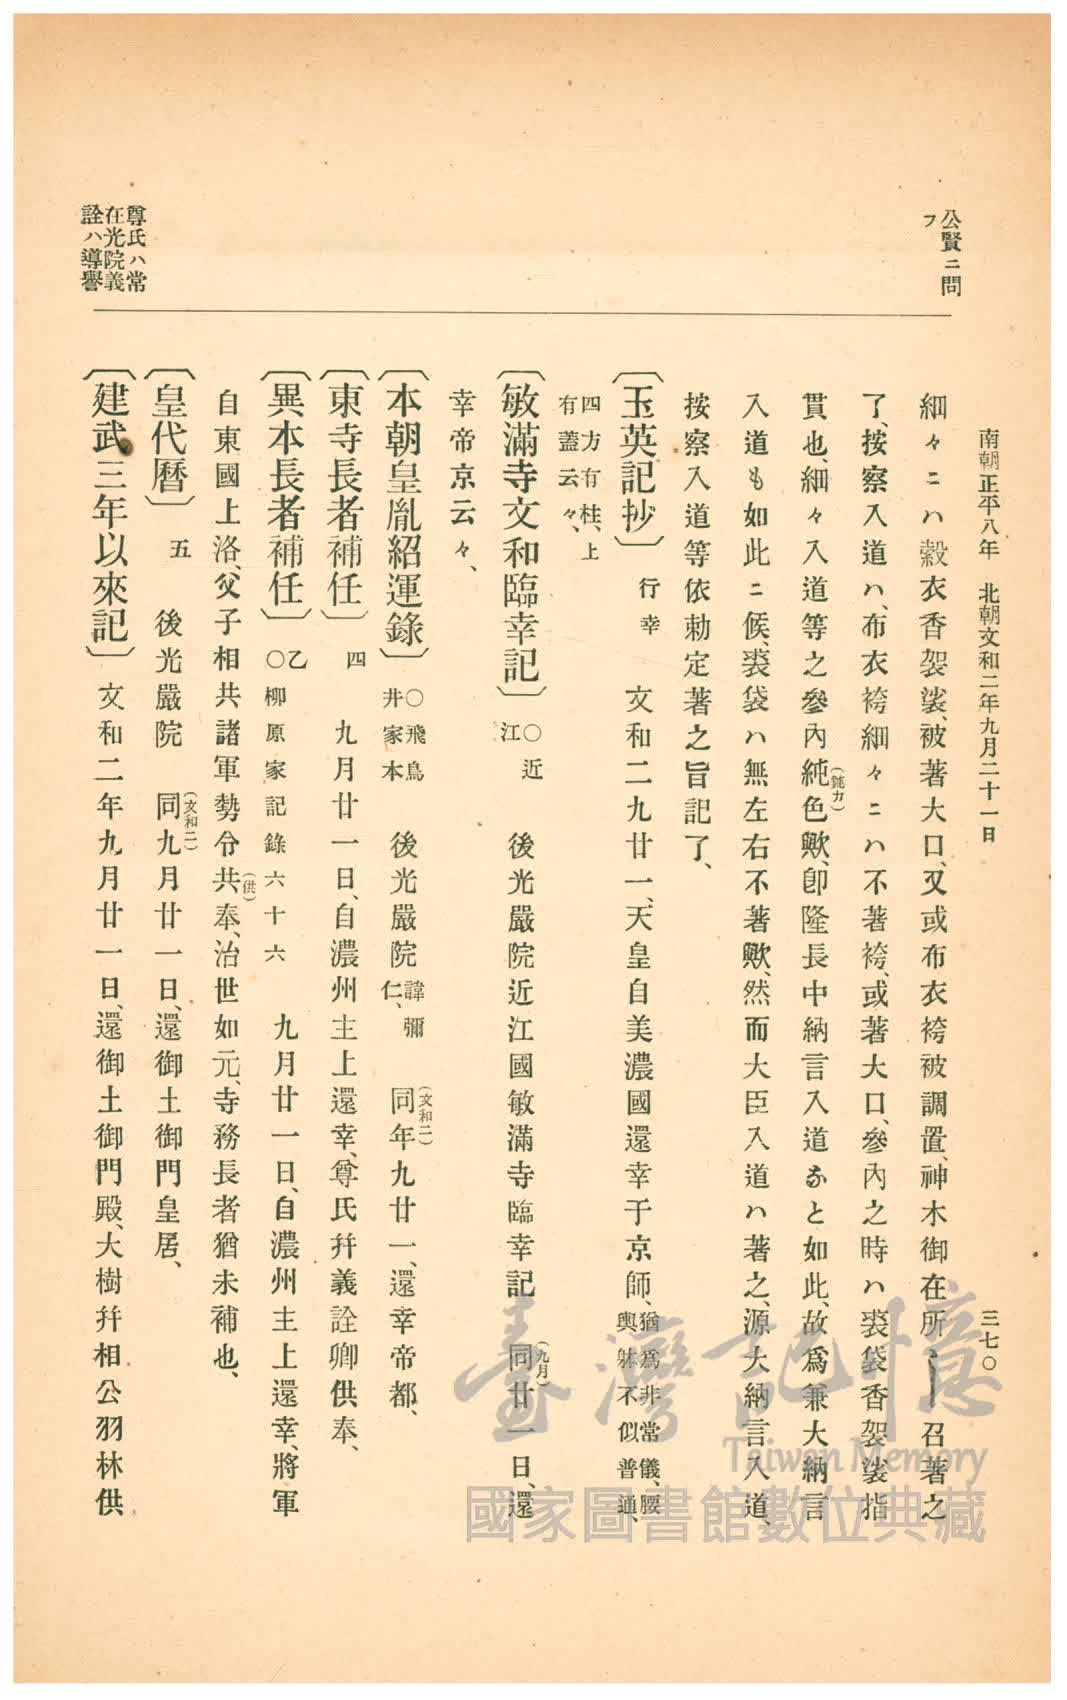 南朝正平八年　北朝文和二年九月二十一日　三七〇
公賢ニ問
フ
細々ニハ縠衣香袈裟、被著大口、又或布衣袴被調置、神木御在所ノ〡召著之
了、按察入道ハ、布衣袴細々ニハ不著袴、或著大口、參內之時ハ裘袋香袈裟指
貫也、細々入道等之參內純(鈍カ)色歟、卽隆長中納言入道なと如此、故爲兼大納言
入道も如此ニ候、裘袋ハ無左右不著歟、然而大臣入道ハ著之、源大納言入道、
按察入道等依勅定著之旨記了、
〔玉英記抄〕行幸　文和二九廿一、天皇自美濃國還幸于京師、猶爲非常儀、腰輿躰不似普通、
四方有柱、上有蓋云々、
〔敏滿寺文和臨幸記〕○近江　後光嚴院近江國敏滿寺臨幸記　同(九月)廿一日、還
幸帝京云々、
〔本朝皇胤紹運錄〕○飛鳥井家本　後光嚴院諱彌仁、　同年(文和二)九廿一、還幸帝都、
〔東寺長者補任〕四　九月廿一日、自濃州主上還幸、尊氏幷義詮卿供奉、
〔異本長者補任〕乙○柳原家記錄六十六　九月廿一日、自濃州主上還幸、將軍
自東國上洛、父子相共諸軍勢令共(供)奉、治世如元、寺務長者猶未補也、
〔皇代曆〕五　後光嚴院　同(文和二)九月廿一日、還御土御門皇居、
〔建武三年以來記〕文和二年九月廿一日、還御土御門殿、大樹幷相公羽林供
尊氏ハ常
在光院義
詮ハ導譽
臺灣記憶
Taiwan Memory
國家圖書館數位典藏